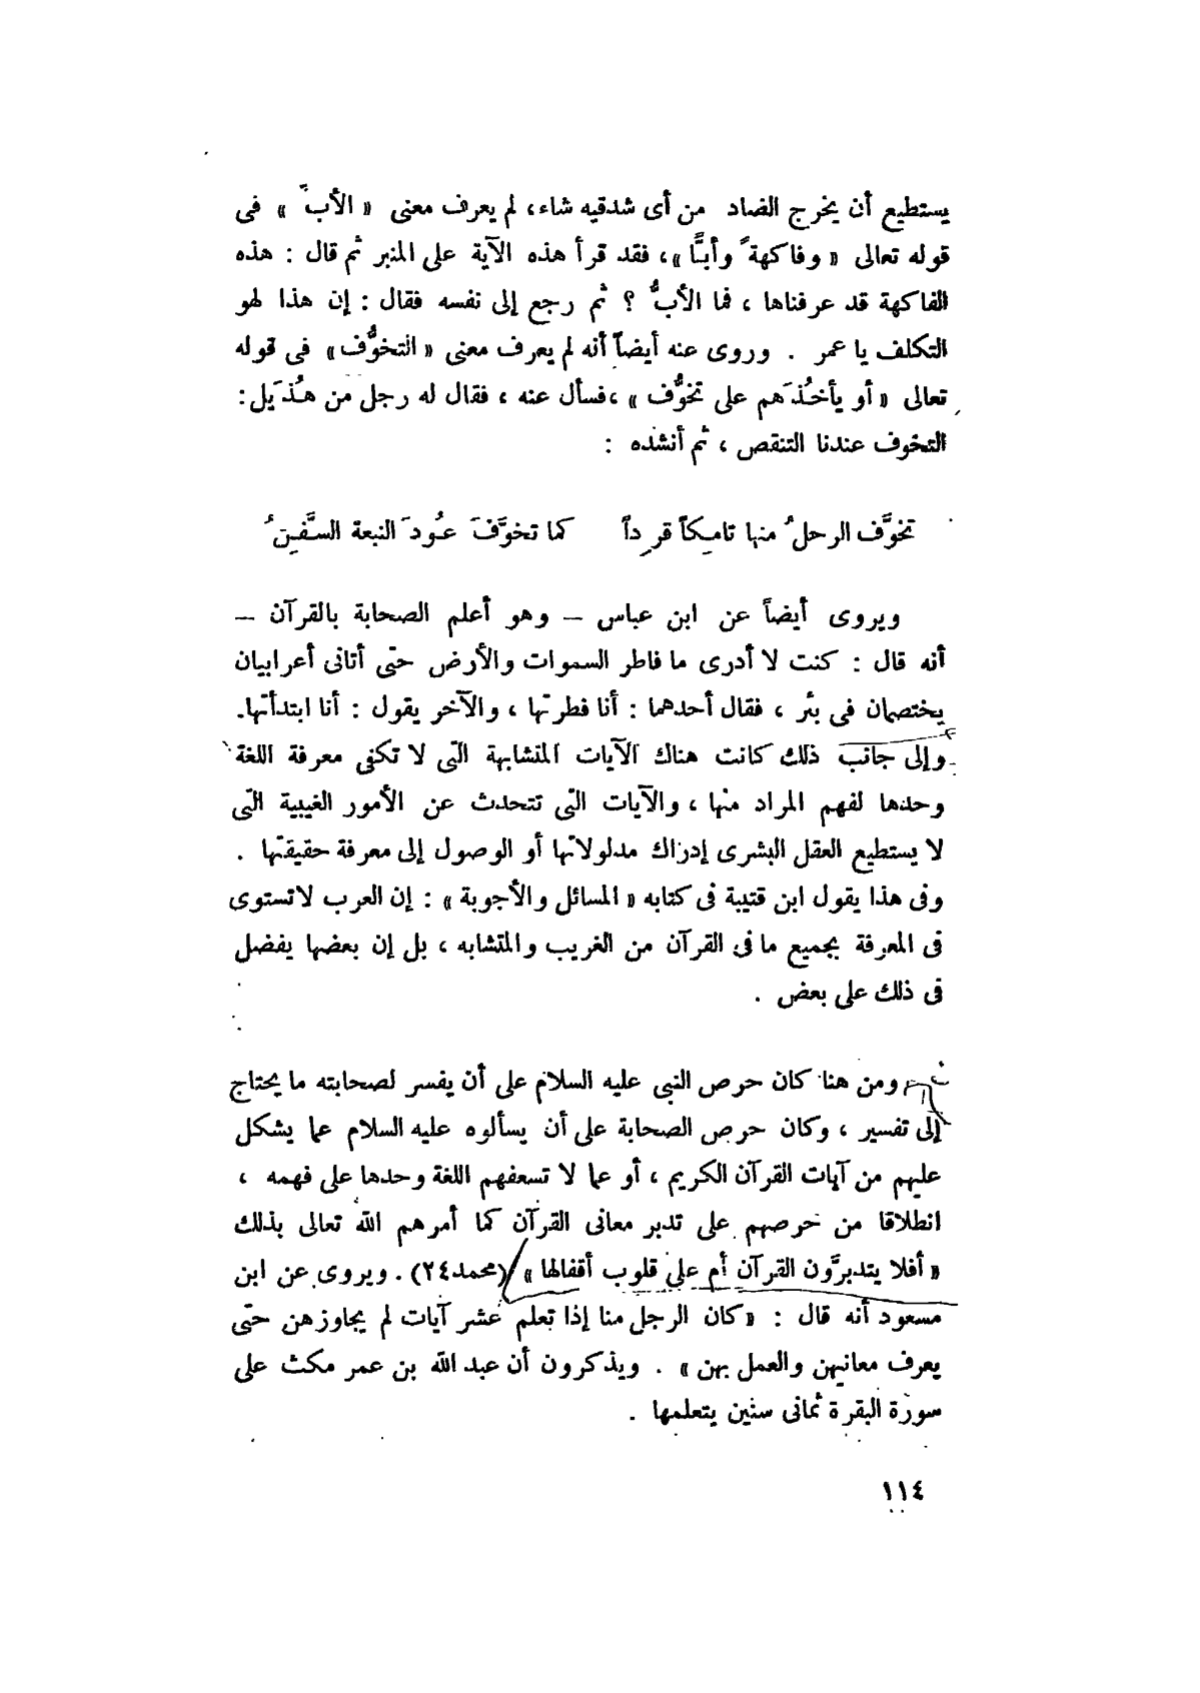 يستطيع أن يخرج الضاد من أى شدقيه شاء، لم يعرف معنى « الأبّ » فى
قوله تعالى « وفاكهةً وأبًّا »، فقد قرأ هذه الآية على المنبر ثم قال : هذه
الفاكهة قد عرفناها ، فما الأبُّ ؟ ثم رجع إلى نفسه فقال : إن هذا لهو
التكلف يا عمر . وروى عنه أيضاً أنه لم يعرف معنى « التخوُّف» فى قوله
تعالى « أو يأخُذَهم على تخوُّف » ،فسأل عنه ، فقال له رجل من هُذَيل :
التخوف عندنا التنقص ، ثم أنشده :
تخوَّف الرحلُ منها تامِكاً قرِداً كما تخوَّفَ عُودَ النبعة السَّفِنُ
ويروى أيضاً عن ابن عباس – وهو أعلم الصحابة بالقرآن –
أنه قال : كنت لا أدرى ما فاطر السموات والأرض حتى أتانى أعرابيان
يختصمان فى بئر ، فقال أحدهما : أنا فطرتها ، والآخر يقول : أنا ابتدأتها.
وإلى جانب ذلك كانت هناك الآيات المتشابهة التى لا تكفى معرفة اللغة
وحدها لفهم المراد منها ، والآيات التى تتحدث عن الأمور الغيبية التى
لا يستطيع العقل البشرى إدراك مدلولاتها أو الوصول إلى معرفة حقيقتها .
وفى هذا يقول ابن قتيبة فى كتابه « المسائل والأجوبة » : إن العرب لاتستوى
فى المعرفة بجميع ما فى القرآن من الغريب والمتشابه ، بل إن بعضها يفضل
فى ذلك على بعض .
ومن هنا كان حرص النبى عليه السلام على أن يفسر لصحابته ما يحتاج
إلى تفسير ، وكان حرص الصحابة على أن يسألوه عليه السلام عما يشكل
عليهم من آيات القرآن الكريم ، أو عما لا تسعفهم اللغة وحدها على فهمه ،
انطلاقا من حرصهم على تدبر معانى القرآن كما أمرهم الله تعالى بذلك
« أفلا يتدبرَّون القرآن أم على قلوب أقفالها » (محمد٢٤) . ويروى عن ابن
مسعود أنه قال : «كان الرجل منا إذا تعلم عشر آيات لم يجاوزهن حتى
يعرف معانيهن والعمل بهن » . ويذكرون أن عبد الله بن عمر مكث على
سورة البقرة ثمانى سنين يتعلمها .
١١٤